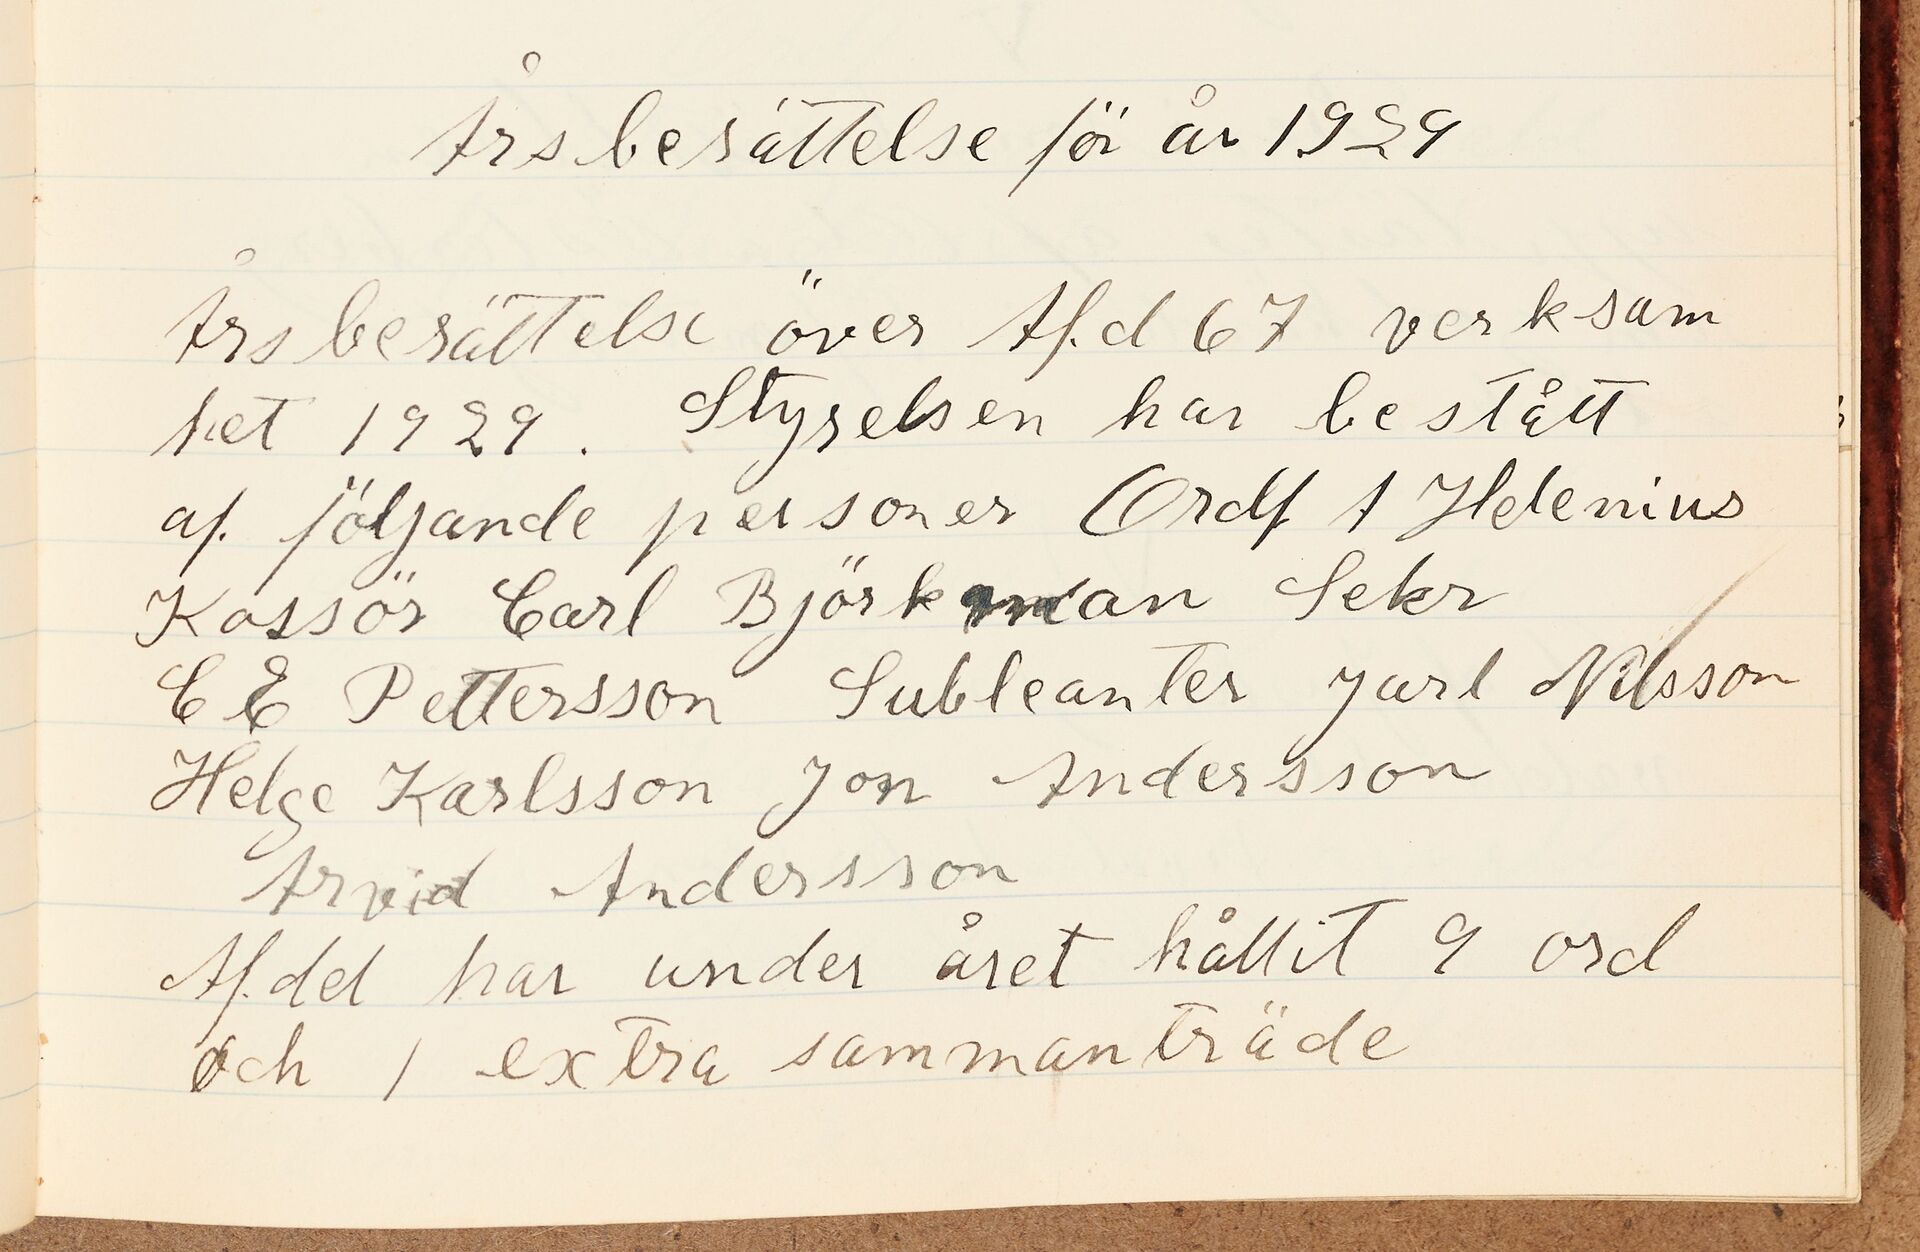 Årsberättelse för år 1929
Årsberättelse över Af.d 67 verksam
het 1929. Styrelsen har bestått
af. följande personer Ordf A Helenius
Kassör Carl Björkman Sekr
C E Pettersson Subleanter Jarl Nilsson
Helge Karlsson Jon Andersson
Arvid Andersson
Af.del har under året hållit 9 ord
och 1 extra sammanträde